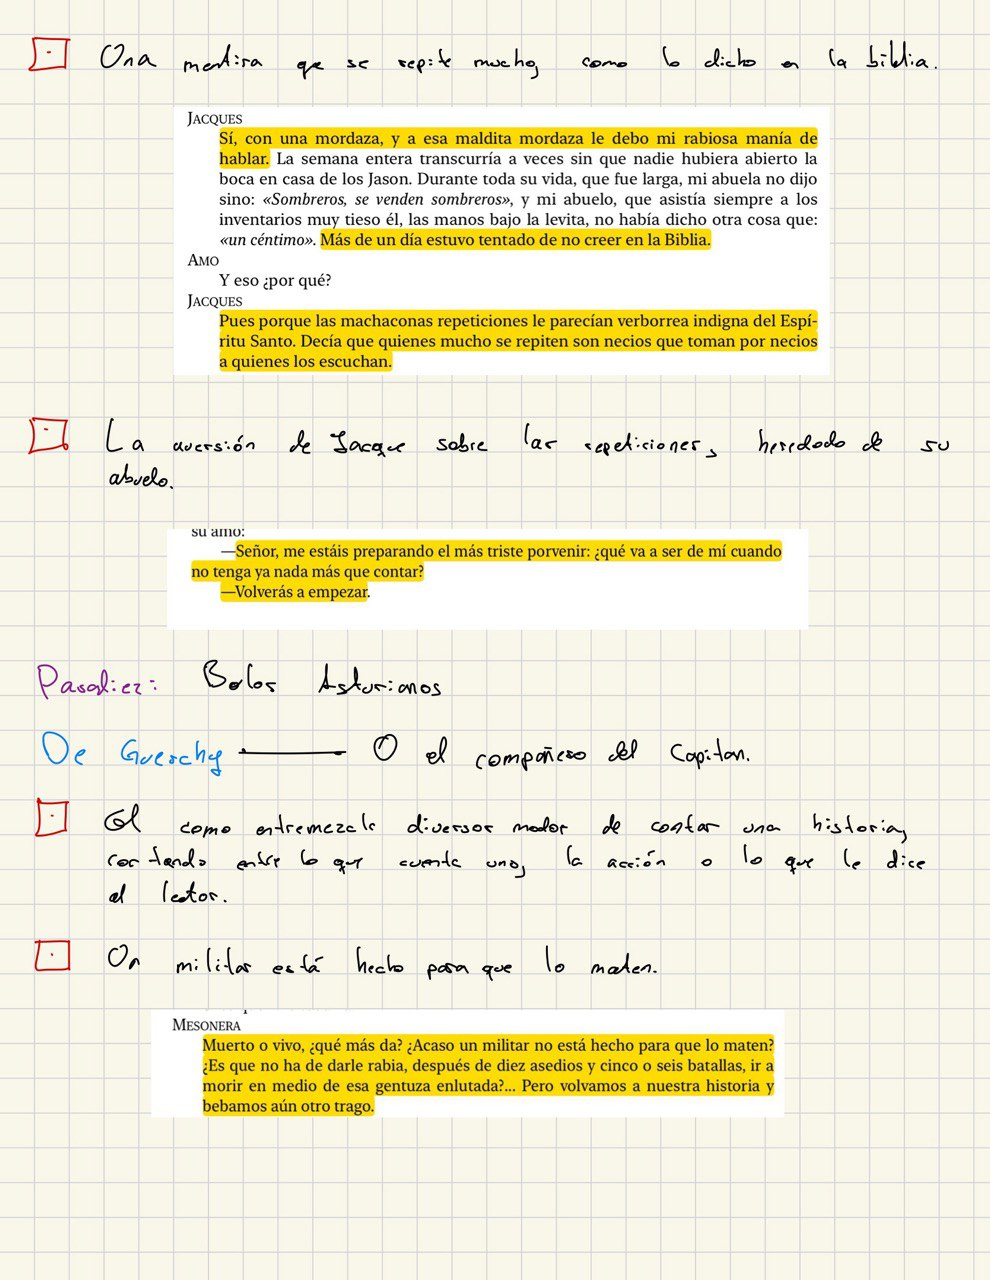 Una mentira que se repite mucho, como lo dicho en la biblia.
JACQUES
Sí, con una mordaza, y a esa maldita mordaza le debo mi rabiosa manía de
hablar. La semana entera transcurría a veces sin que nadie hubiera abierto la
boca en casa de los Jason. Durante toda su vida, que fue larga, mi abuela no dijo
sino: «Sombreros, se venden sombreros», y mi abuelo, que asistía siempre a los
inventarios muy tieso él, las manos bajo la levita, no había dicho otra cosa que:
«un céntimo». Más de un día estuvo tentado de no creer en la Biblia.
AMO
Y eso ¿por qué?
JACQUES
Pues porque las machaconas repeticiones le parecían verborrea indigna del Espí-
ritu Santo. Decía que quienes mucho se repiten son necios que toman por necios
a quienes los escuchan.
La aversión de Jacque sobre las repeticiones, heredado de su
abuelo.
su amo:
—Señor, me estáis preparando el más triste porvenir: ¿qué va a ser de mí cuando
no tenga ya nada más que contar?
—Volverás a empezar.
Bolos Asturianos
De Guerchy — O el compañero del Capitan.
El como entremezcla diversos modos de contar una historia,
cortando entre lo que cuenta uno, la acción o lo que le dice
al lector.
Un militar está hecho para que lo maten.
MESONERA
Muerto o vivo, ¿qué más da? ¿Acaso un militar no está hecho para que lo maten?
¿Es que no ha de darle rabia, después de diez asedios y cinco o seis batallas, ir a
morir en medio de esa gentuza enlutada?... Pero volvamos a nuestra historia y
bebamos aún otro trago.